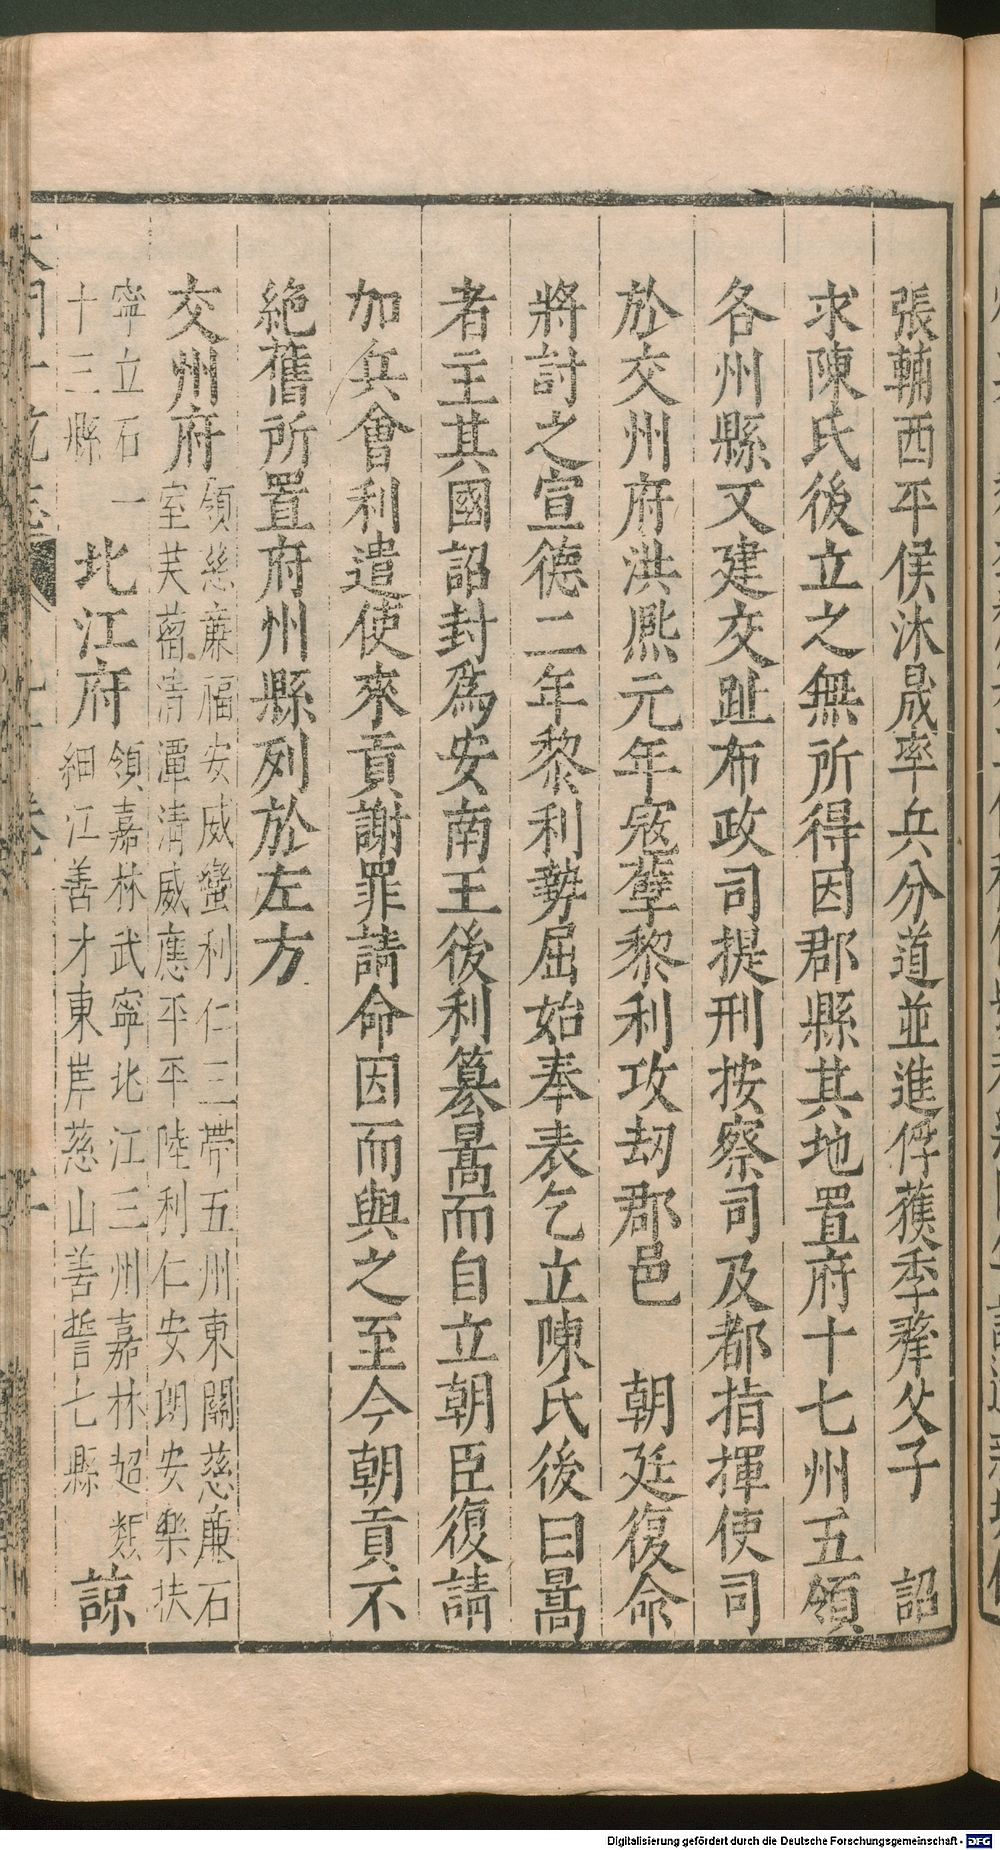 張輔西平侯沐晟率兵分道並進俘獲季犛父子　詔
求陳氏後立之無所得因郡縣其地置府十七州五領
各州縣又建交趾布政司提刑按察司及都指揮使司
於交州府洪熙元年寇孽黎利攻刼郡邑　朝廷復命
將討之宣德二年黎利勢屈始奉表乞立陳氏後曰暠
者主其國詔封爲安南王後利篡暠而自立朝臣復請
加兵會利遣使來貢謝罪請命因而與之至今朝貢不
絶舊所置府州縣列於左方
交州府
領慈廉福安威蠻利仁三帶五州東關慈廉石
室芙蒥清潭清威應平平陸利仁安朗安樂扶
寧立石一
十三縣
北江府
領嘉林武寧北江三州嘉林超類
細江善才東岸慈山善誓七縣
諒
Digitalisierung gefördert durch die Deutsche Forschungsgemeinschaft - DFG